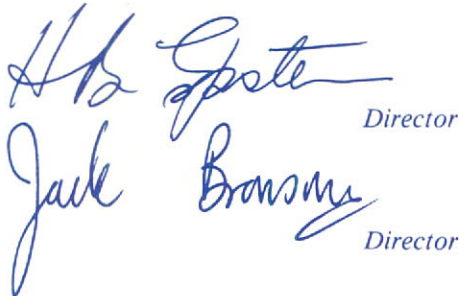 H B Epstein
Director
Jack Bronsony
Director